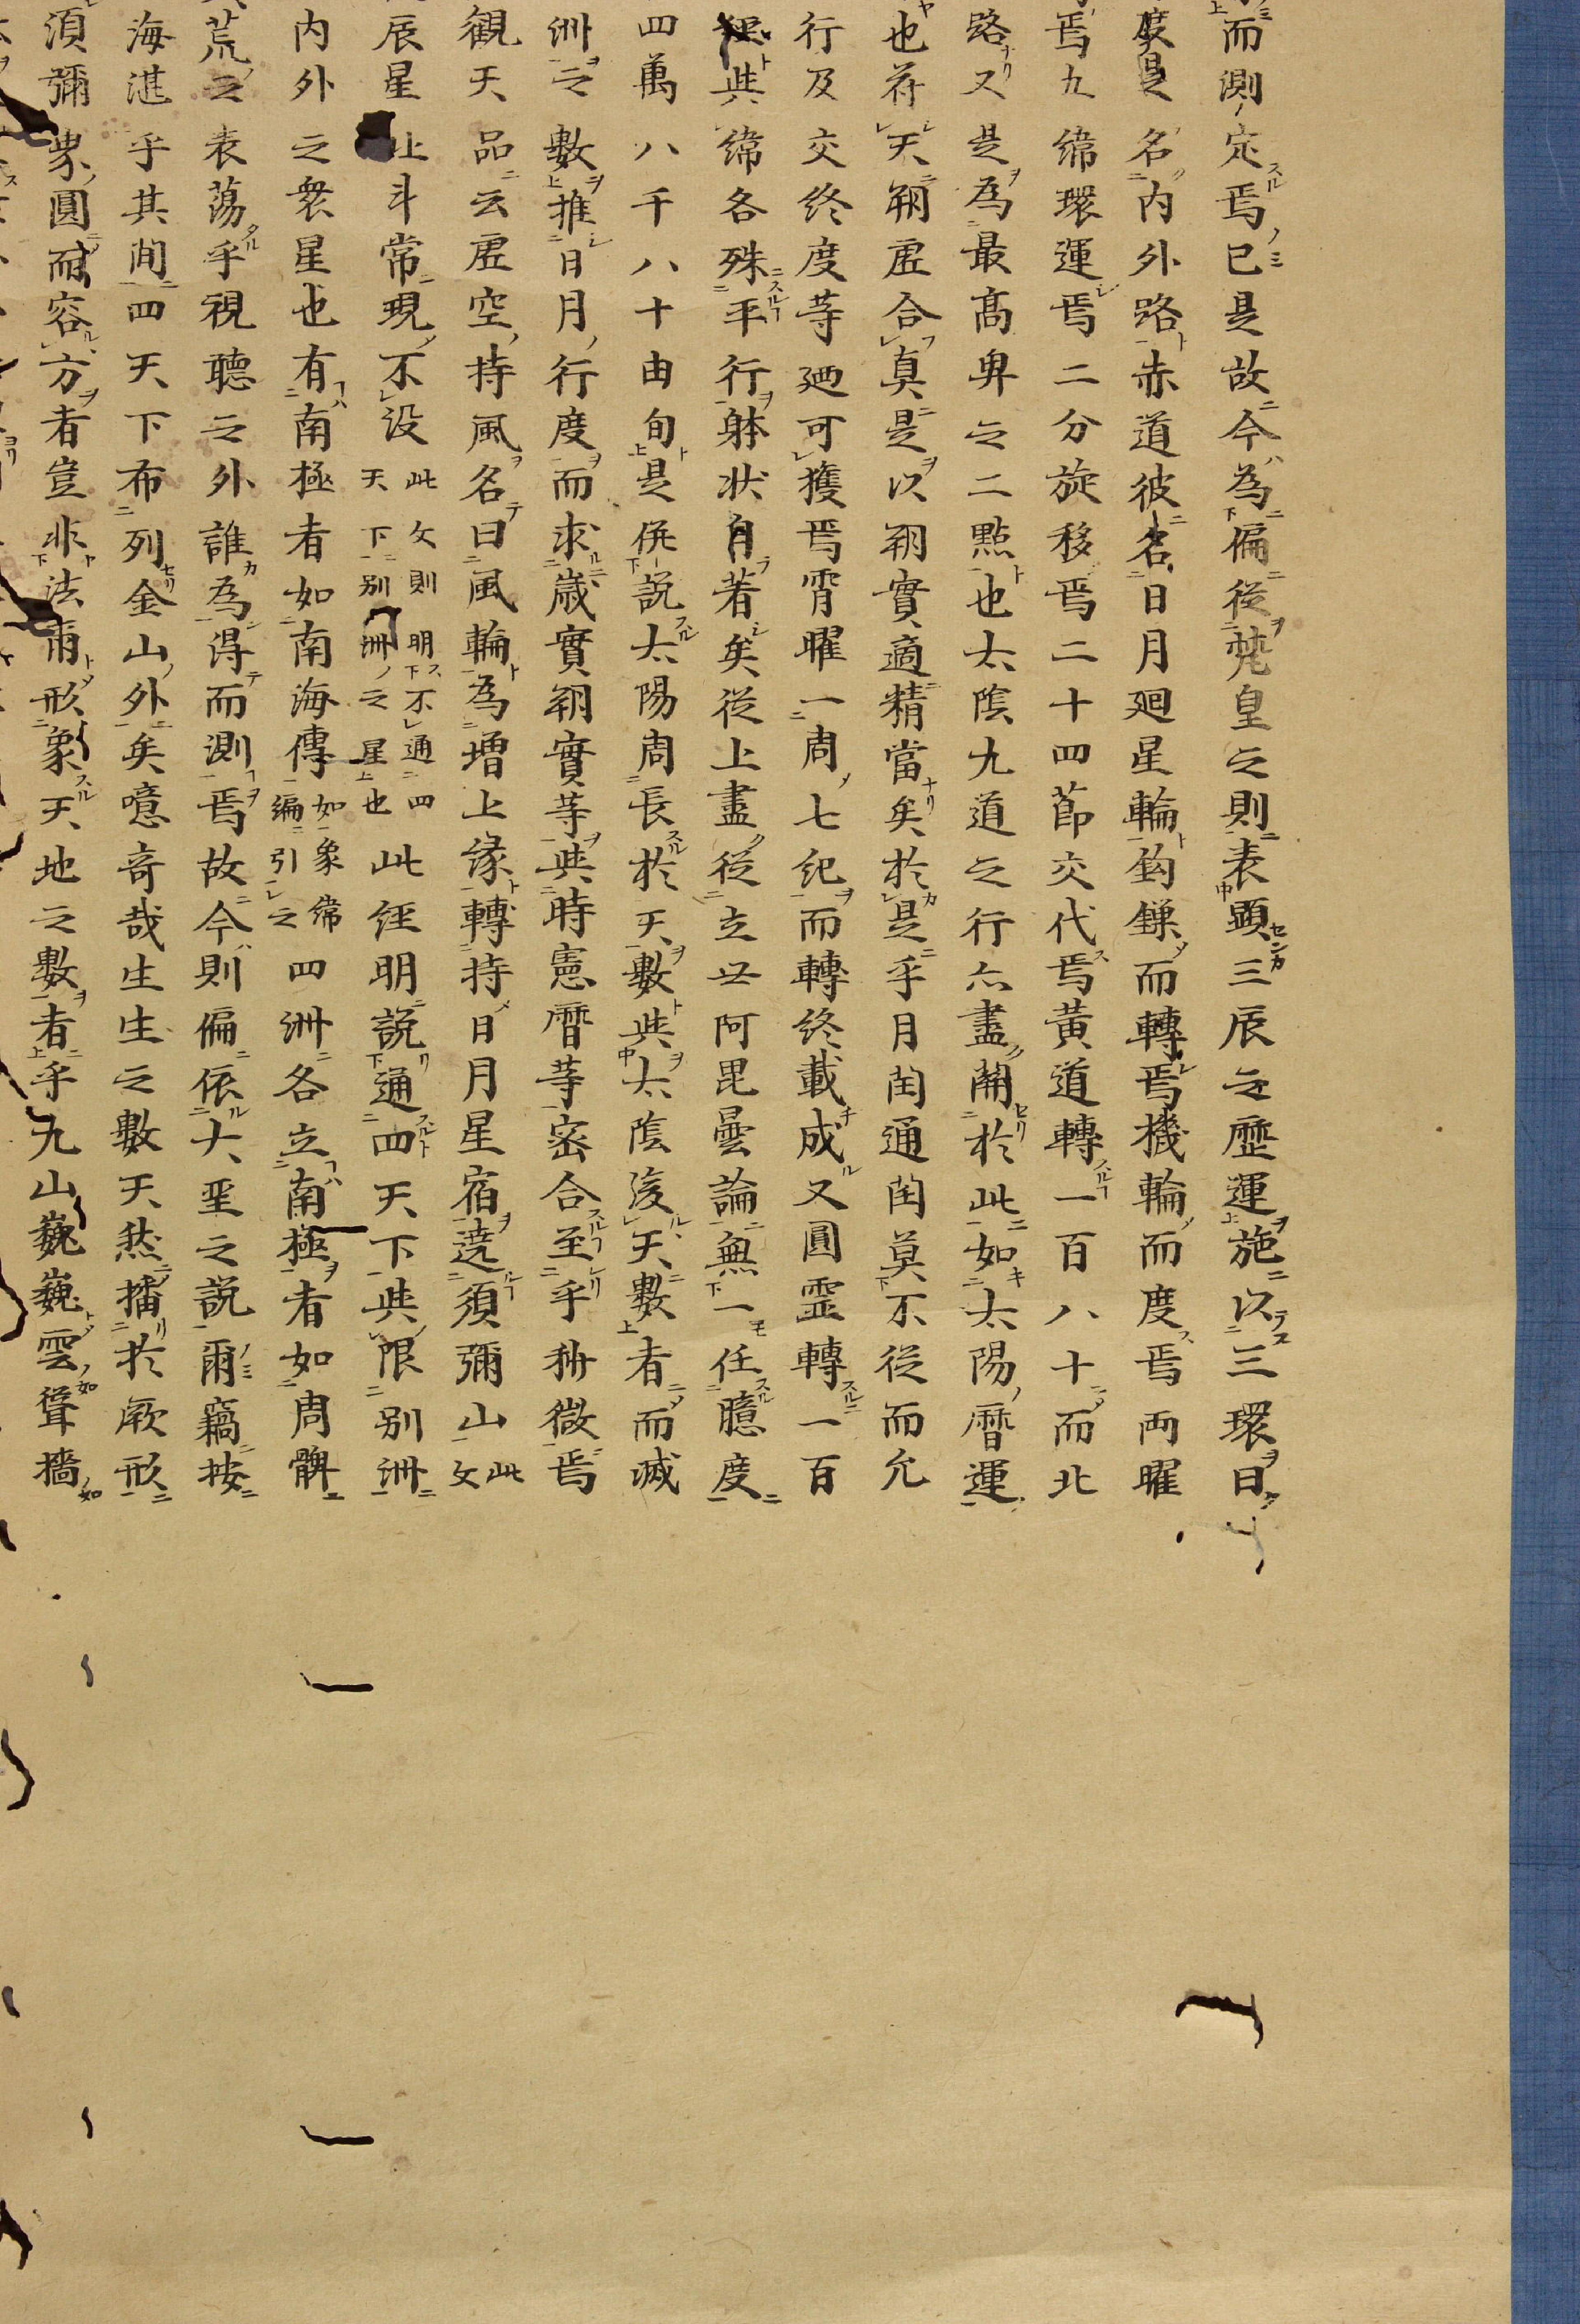 而測定焉已是故今為偏從梵皇之則表顯三辰之歷運施以三環日
度是名内外路赤道彼名日月廻星輪鈎鎌而轉焉機輪而度焉両曜
焉九緯環運焉二分旋移焉二十四節交代焉黄道轉一百八十而北
路又是為最高卑之二點也太陰九道之行亦盡開於此如太陽曆運
也符天朔虛合真是以朔實適精當矣於是乎月闰通闰莫不從而允
行及交终度等廼可獲焉霄曜一周七紀而轉终載成又圓霊轉一百
與緯各殊平行躰状自若矣從上盡從立世阿毘曇論無一任臆度
四萬八千八十由旬是併說太陽周長於天數與太陰後天數者而減
洲之數推日月行度而求歲實朔實等與時憲曆等密合至乎秒微焉
観天品云虛空持風名曰風輪為増上缘轉持日月星宿遶須彌山此文
辰星北斗常現不設此文則明不通四天下别洲之星也此經明說通四天下與限别洲
内外之衆星也有南極者如南海傳如象緯編引之四洲各立南極者如周髀
荒之表蕩乎視聽之外誰為得而測焉故今則偏依大聖之說爾竊按
海湛乎其间四天下布列金山外矣噫奇哉生生之數天然播於厥形
湏彌衆圓而容方者豈非法爾形象天地之數者乎九山巍巍雲聳墻